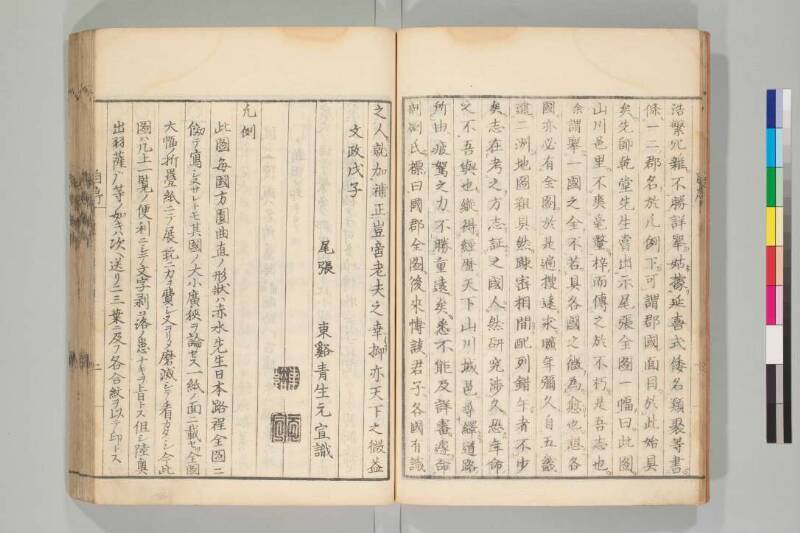 浩繁冗雜不勝詳畢姑摭延喜式倭名類聚等書
條一二郡名於凡例下可謂郡國面目於此始具
矣先師乾堂先生嘗出示尾張全圖一幅曰此圖
山川邑里不爽毫釐梓而傳之於不朽是吾志也
余謂擧一國之全不若具各國之備為愈也但各
國亦必有全圖於是遍搜遠求曠年彌久自五畿
遠二洲地圖粗具然踈密相間配列錯午者不少
矣志在考之方志証之國人然研究渉久恐年命
之不吾與也纔得經歴天下山川城邑尋繹道路
所由疲駑之力不勝重遠矣悉不能及詳盡遂命
剞劂氏標曰國郡全圖後來博識君子各國有識
之人就加補正豈啻老夫之幸抑亦天下之微益
文政戊子
尾張 東谿青生元宣識
凡例
此圖毎國方圓曲直ノ形狀ハ赤水先生日本路程全圖ニ
倣テ寫シ𪜈其國ノ大小廣狹ヲ論セス一紙ノ面ニ載セツ全圖
大幅ノ折疊紙ニテ展玩ニ力ヲ費シ又ヲリメ磨滅シテ看カタシ今此
圖ハ几上一覽ノ便利ニシテ文字剥落ノ患ナキヲ旨トス但シ陸奧
出羽薩ノ等ノ如キハ次ヘ送リ二三葉ニ及フ各合紋ヲ以テ印トス
自序
二